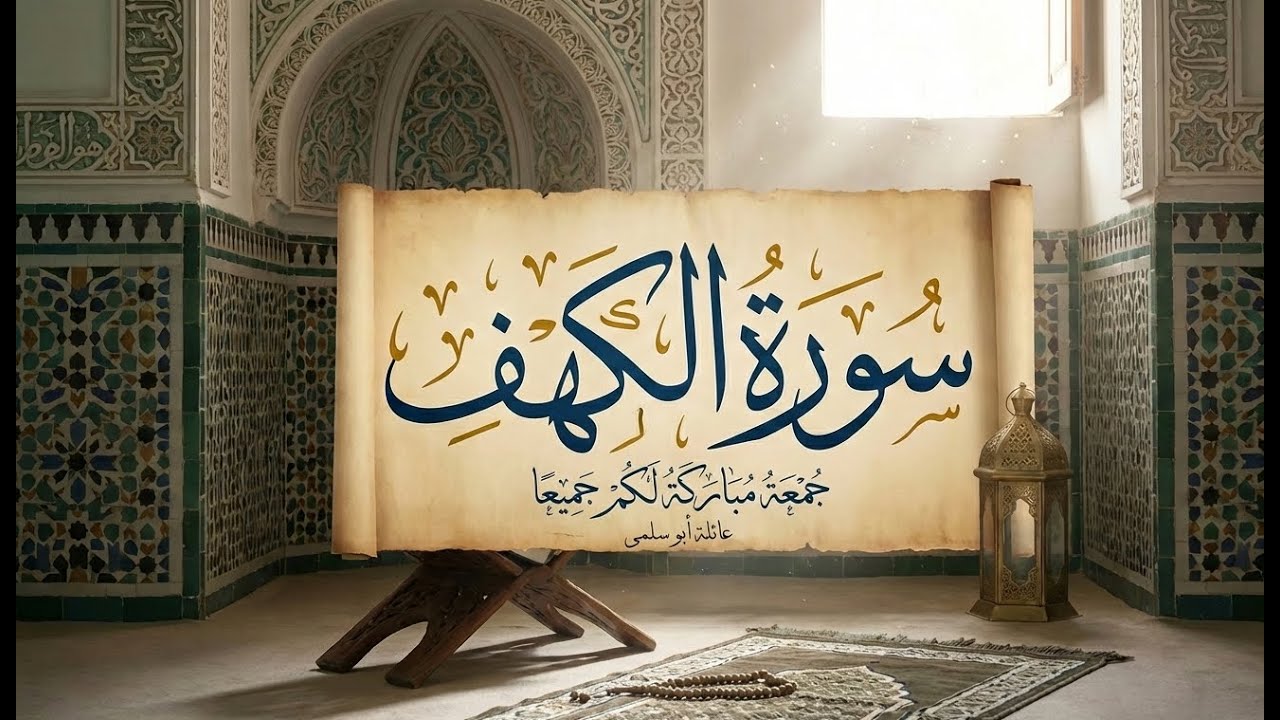 سُورَةُ الْكَهْفِ
جُمْعَةُ مُبَارَكَةُ لَكُمْ جَمِيعًا
عائلة أبو سلمى